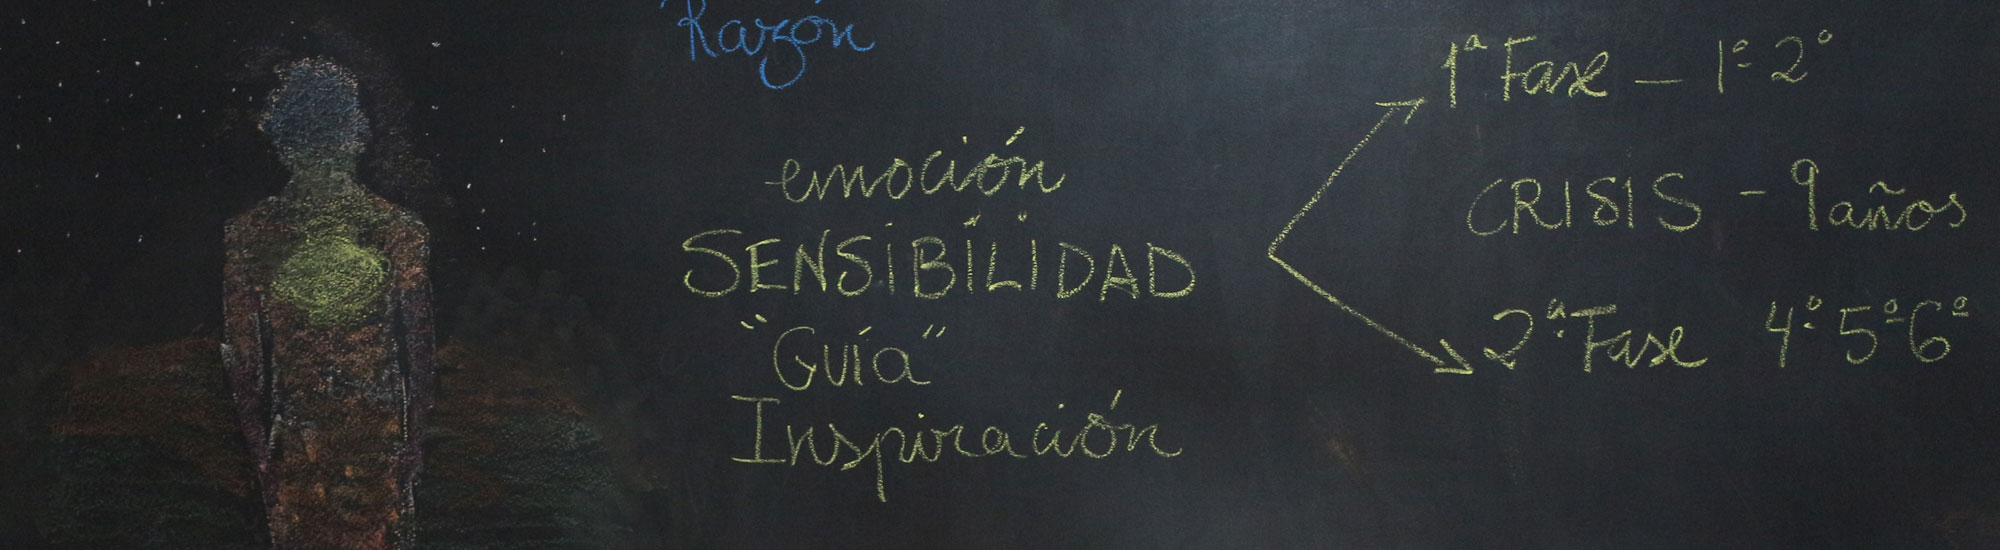 Razón
emoción
SENSIBILIDAD
"Guía"
Inspiración
1ª Fase - 1º 2º
CRISIS - 9 años
2ª Fase 4º 5º 6º